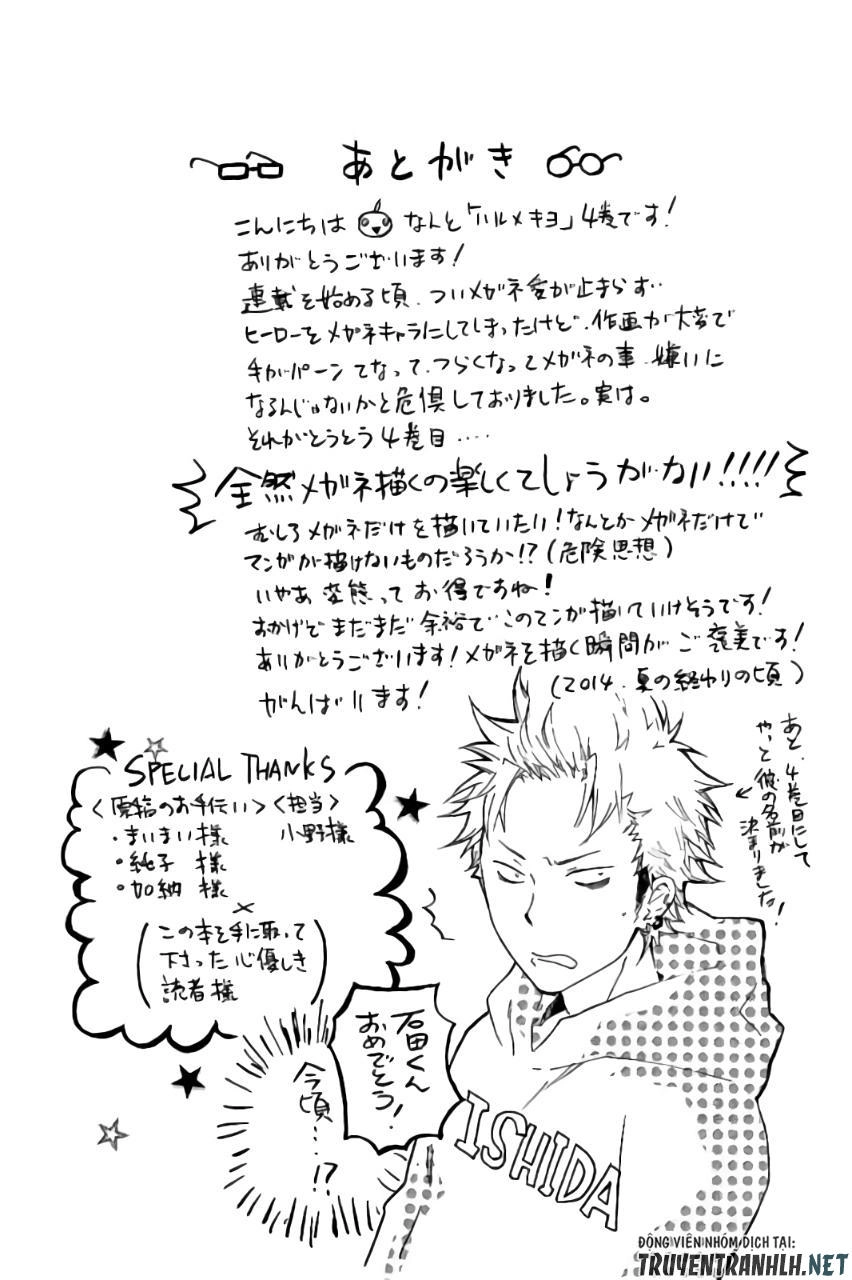 あとがき
こんにちは なんと「ハルメキヨ」4巻です!
ありがとうございます!
連載を始める頃、ついメガネ愛が止まらず‥
ヒーローをメガネキャラにしてしまったけど、作画が大変で
手がパーンてなって、つらくなってメガネの事、嫌いに
なるんじゃないかと危惧しておりました。実は。
それがとうとう4巻目‥‥
全然メガネ描くの楽しくてしょうがない!!!!
むしろメガネだけを描いていたい!なんとかメガネだけで
マンガが描けないものだろうか!?(危険思想)
いやあ変態ってお得ですね!
おかげでまだまだ余裕でこのマンガ描いていけそうです!
ありがとうございます!メガネを描く瞬間がご褒美です!
がんばります!
(2014.夏の終わりの頃)
あと、4巻目にして
やっと彼の名前が
決まりました!
SPECIAL THANKS
<原稿のお手伝い> <担当>
・まいまい様 小野様
・純子様
・加納様
×
(この本を手に取って
下さった心優しき
読者様)
石田くん
おめでとう!
今頃…!?
ISHIDA
ĐỘNG VIÊN NHÓM DỊCH TẠI:
TRUYENTRANHLH.NET